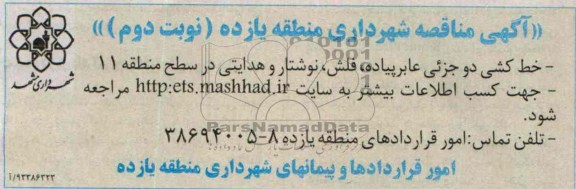 «آگهی مناقصه شهرداری منطقه یازده (نوبت دوم)»
- خط کشی دو جزئی عابرپیاده، فلش، نوشتار و هدایتی در سطح منطقه ۱۱
- جهت کسب اطلاعات بیشتر به سایت http:ets.mashhad.ir مراجعه
شود.
- تلفن تماس: امور قراردادهای منطقه یازده ۸-۳۸۶۹۴۰۰۵
امور قراردادها و پیمانهای شهرداری منطقه یازده
شهرداری مشهد
۱/۹۳۳۸۶۳۲۲
ParsNamadData